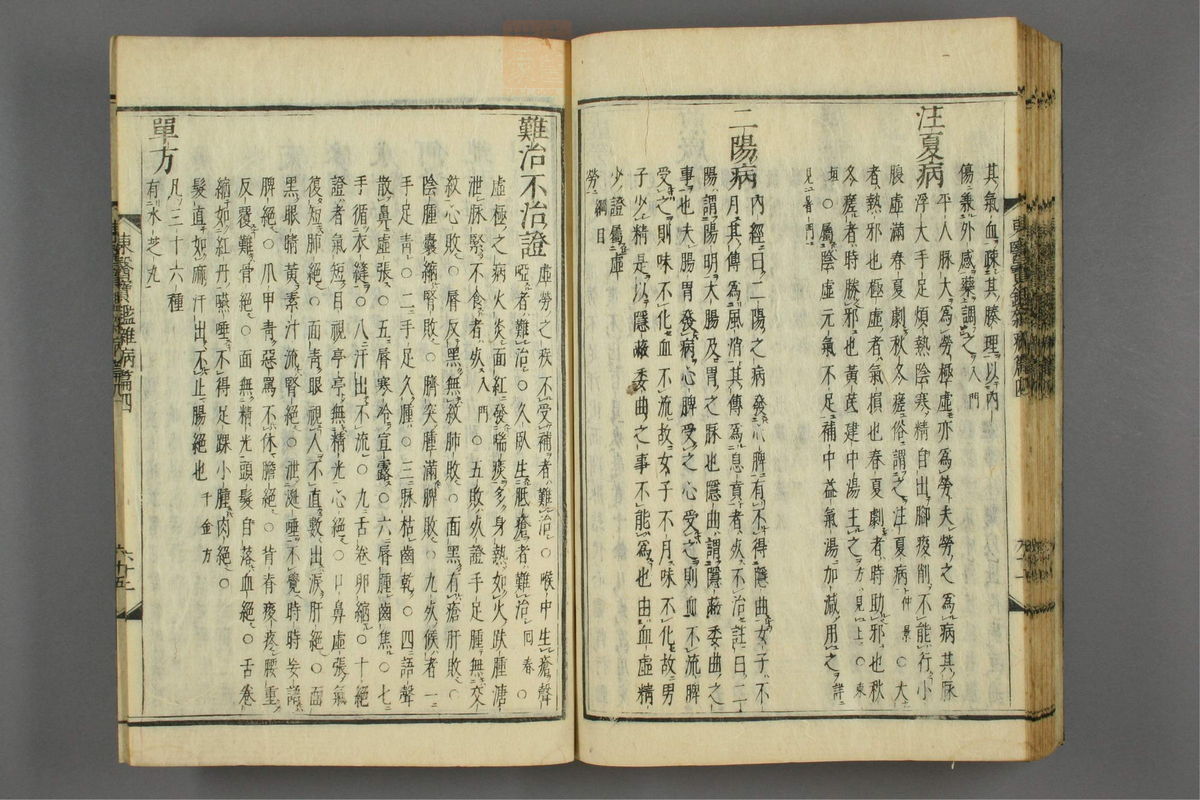 其氣血疎其腠理以內
傷兼外感藥調之入門
注夏病
平人脉大爲勞極虛亦爲勞夫勞之爲病其脉
浮大手足煩熱陰寒精自出脚痠削不能行小
腹虛滿春夏劇秋冬瘥俗謂之注夏病仲景○大
者熱邪也極虛者氣損也春夏劇者時助邪也秋
冬瘥者時勝邪也黃芪建中湯主之方見上○東
垣○屬陰虛元氣不足補中益氣湯加減用之詳
見暑門
二陽病
內經曰二陽之病發心脾有不得隱曲女子不
月其傳爲風消其傳爲息賁者死不治註曰二
陽謂陽明大腸及胃之脉也隱曲謂隱蔽委曲之
事也夫腸胃發病心脾受之心受之則血不流脾
受之則味不化血不流故女子不月味不化故男
子少精是以隱蔽委曲之事不能爲也由血虛精
少證屬虛
勞綱目
難治不治證
虛勞之疾不受補者難治○喉中生瘡聲
啞者難治○久臥生胝瘡者難治回春○
虛極之病火炎面紅發喘痰多身熱如火跗腫溏
泄脉緊不食者死入門○五敗死證手足腫無交
紋心敗○脣反黑無紋肺敗○面黑有瘡肝敗○
陰腫囊縮腎敗○臍突腫滿脾敗○九死候者一
手足靑○二手足久腫○三脉枯齒乾○四語聲
散鼻虛張○五脣寒冷宣露○六脣腫齒焦○七
手循衣縫○八汗出不流○九舌卷卵縮○十絕
證者氣短目視亭亭無精光心絕○口鼻虛張氣
復短肺絕○面靑眼視人不直數出淚肝絕○面
黑眼睛黃素汁流腎絕○泄涎唾不覺時時妄語
脾絕○爪甲靑惡罵不休膽絕○背脊痠疼腰重
反覆難骨絕○面無精光頭髮自落血絕○舌卷
縮如紅丹嚥唾不得足踝小腫肉絕○
髮直如麻汗出不止腸絕也千金方
單方
凡三十六種
有水芝丸
東醫寶鑑雜病篇四
六十五